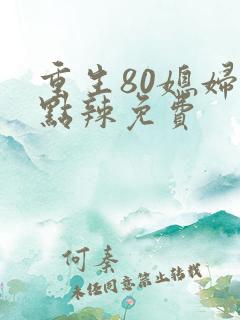 重生80媳婦
點辣免費
何秦
未经同意禁止转载